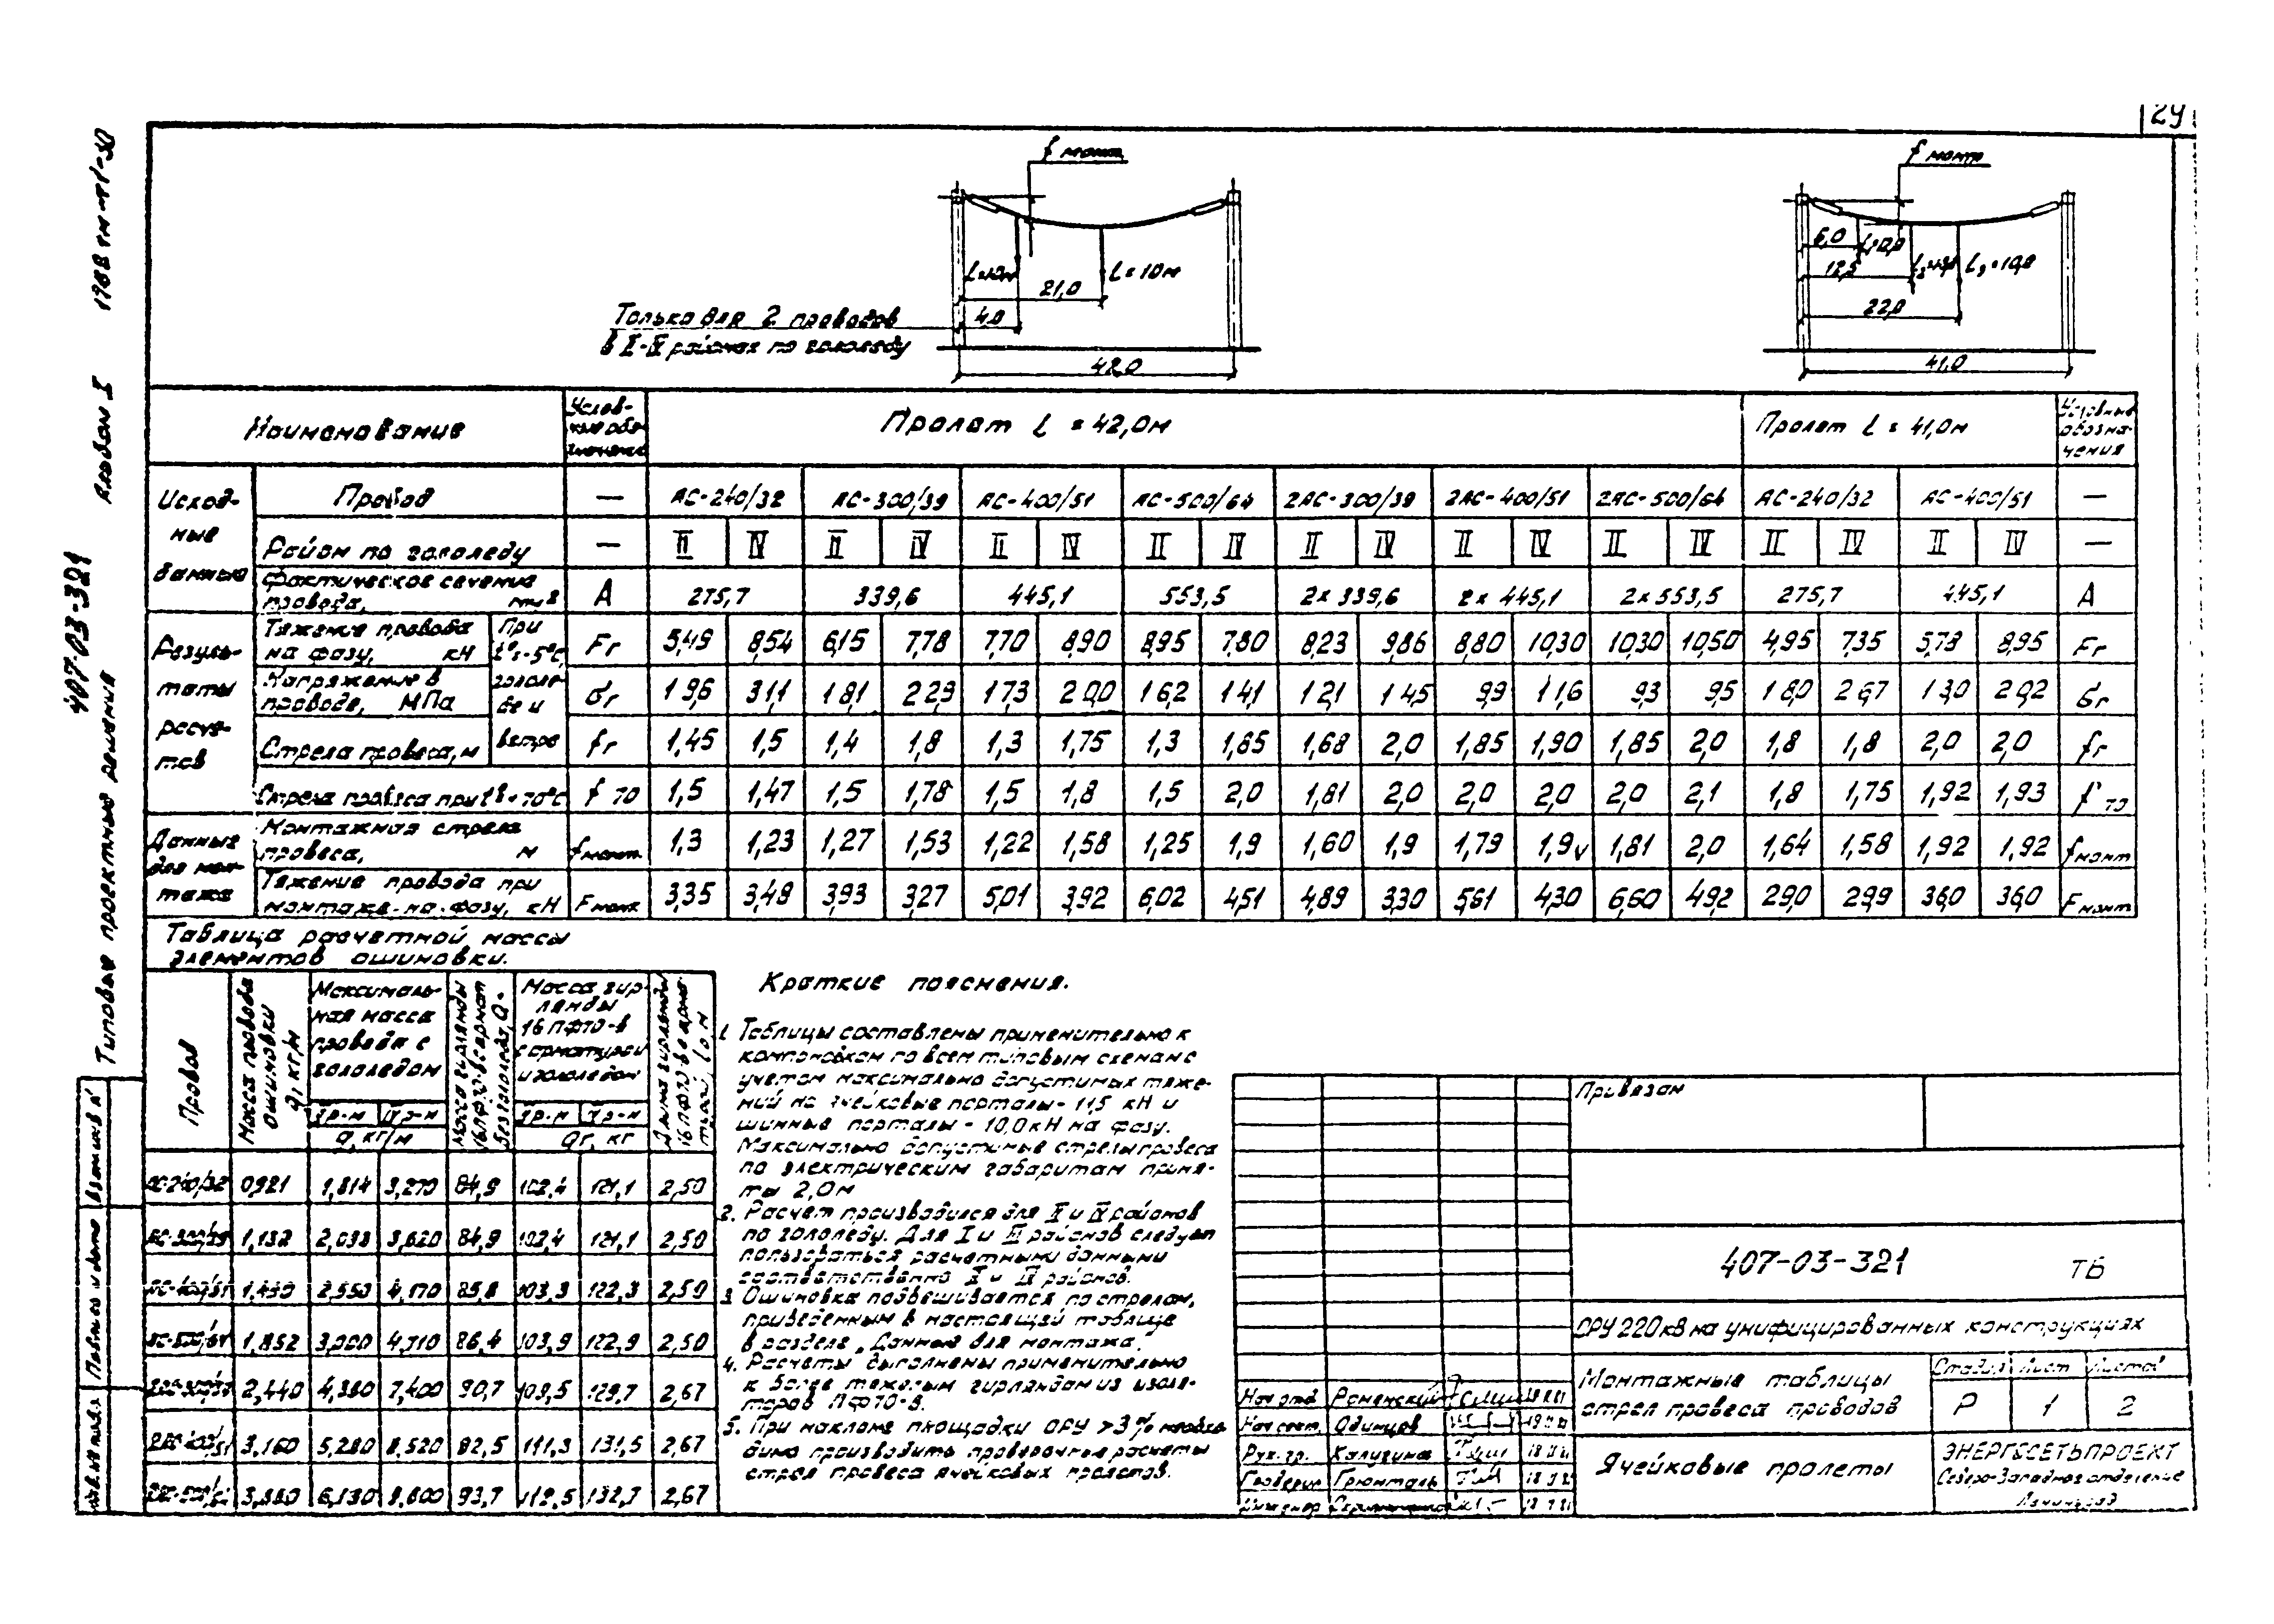 24
407-03-321
Типовые проектные решения
Альбом I
f монт
f монт
L=10м
21,0
4,0
42,0
6,0
12,5
22,0
41,0
Только для 2 проводов
в II-IV районах по гололеду
Наименование
Условные обозначения
Пролет L = 42,0м
Пролет L = 41,0м
Условные обозначения
Исходные данные
Провод — АС-240/32 АС-300/39 АС-400/51 АС-500/64 2АС-300/39 2АС-400/51 2АС-500/64 АС-240/32 АС-400/51 —
Район по гололеду — II IV II IV II IV II IV II IV II IV II IV II IV II IV —
Фактическое сечение провода, мм2 А 275,7 339,6 445,1 553,5 2х339,6 2х445,1 2х553,5 275,7 445,1 А
Результаты расчетов
При t°=-5°С, гололеде и ветре
Тяжение провода на фазу, кН Fг 5,49 8,54 6,15 7,78 7,70 8,90 8,95 7,80 8,23 9,86 8,80 10,30 10,30 10,50 4,95 7,35 5,78 8,95 Fг
Напряжение в проводе, МПа σг 19,6 31,1 18,1 22,9 17,3 20,0 16,2 14,1 12,1 14,5 9,9 11,6 9,3 9,5 18,0 26,7 13,0 20,2 σг
Стрела провеса, м fг 1,45 1,5 1,4 1,8 1,3 1,75 1,3 1,85 1,68 2,0 1,85 1,90 1,85 2,0 1,8 1,8 2,0 2,0 fг
Стрела провеса при t°=+70°С f 70 1,5 1,47 1,5 1,78 1,5 1,8 1,5 2,0 1,81 2,0 2,0 2,0 2,0 2,1 1,8 1,75 1,92 1,93 f 70
Данные для монтажа
Монтажная стрела провеса, м fмонт 1,3 1,23 1,27 1,53 1,22 1,58 1,25 1,9 1,60 1,9 1,79 1,9 1,81 2,0 1,64 1,58 1,92 1,92 fмонт
Тяжение провода при монтаже на фазу, кН Fмонт 3,35 3,48 3,93 3,27 5,01 3,92 6,02 4,51 4,89 3,30 5,61 4,30 6,60 4,92 2,90 2,99 3,60 3,60 Fмонт
Таблица расчетной массы
элементов ошиновки.
Провод
Масса провода ошиновки q1 кг/м
Максимальная масса провода с гололедом
II р-н IV р-н
q, кг/м
Масса гирлянды 16ПФ70-в с армат. без гололеда,
Масса гирлянды 16ПФ70-в с арматурой и гололедом
II р-н IV р-н
Qг, кг
Длина гирлянды 16ПФ70-в с арматурой, Lо, м
АС-240/32 0,921 1,814 3,270 84,9 102,4 121,1 2,50
АС-300/39 1,132 2,033 3,620 84,9 102,4 121,1 2,50
АС-400/51 1,490 2,550 4,170 85,8 103,3 122,3 2,50
АС-500/64 1,852 3,000 4,710 86,4 103,9 122,9 2,50
2АС-300/39 2,440 4,380 7,400 90,7 109,5 129,7 2,67
2АС-400/51 3,160 5,280 8,520 92,5 111,3 131,5 2,67
2АС-500/64 3,880 6,130 9,600 93,7 112,5 132,7 2,67
Краткие пояснения.
1. Таблицы составлены применительно к
компоновкам по всем типовым схемам с
учетом максимально допустимых тяже-
ний на ячейковые порталы - 11,5 кН и
шинные порталы - 10,0 кН на фазу.
Максимально допустимые стрелы провеса
по электрическим габаритам приня-
ты 2,0м
2. Расчет производился для II и IV районов
по гололеду. Для I и III районов следует
пользоваться расчетными данными
соответственно II и IV районов.
3. Ошиновка подвешивается по стрелам,
приведенным в настоящей таблице
в разделе „Данные для монтажа".
4. Расчеты выполнены применительно
к более тяжелым гирляндам из изоля-
торов ПФ70-в.
5. При наклоне площадки ОРУ >3% необхо-
димо производить проверочные расчеты
стрел провеса ячейковых пролетов.
Привязан
407-03-321 ТБ
ОРУ 220 кВ на унифицированных конструкциях
Монтажные таблицы
стрел провеса проводов
Стадия Лист Листов
Р 1 2
Ячейковые пролеты
ЭНЕРГОСЕТЬПРОЕКТ
Северо-Западное отделение
Ленинград
Нач.отд. Роменский
Нач.сект. Одинцов
Рук.гр. Калугина
Проверил Грюнталь
Инженер
Взам.инв.№
Подпись и дата
Инв.№ подл.